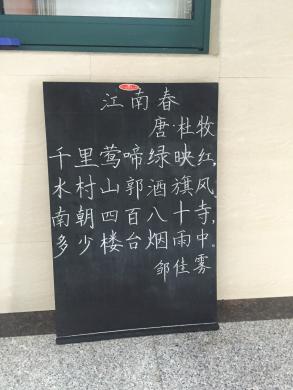 江南春
唐·杜牧
千里莺啼绿映红,
水村山郭酒旗风,
南朝四百八十寺,
多少楼台烟雨中。
邹佳雾